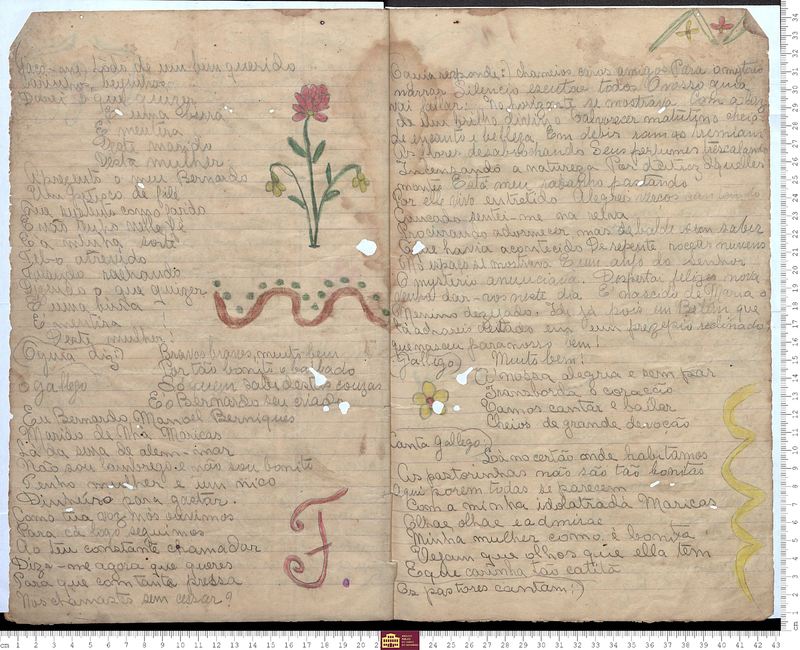 Faço-me lado de um bem querido
Dansei o que quizer
É uma burra
É mentira
Deste marido
Desta mulher.
Apresento o meu Bernardo
Um pedaço de filé
E a minha sorte
Fel-o atrevido
Quando
o que quizer
É uma burra !
É mentira !
Deste mulher!
O guia diz) Bravos bravos, muito bem
Por tão bonito bailado
O gallego Só quem sabe destas couzas
É o Bernardo seu criado
Eu Bernardo Manoel Berniques
Marido de Nhá Maricas
Lá da serra de alem-mar
Não sou lambrego e não sou bonito
Tenho mulher e um nico
Dinheiro para gastar.
Como tua voz nos ouvimos
Para cá logo seguimos
Ao teu constante chamadar
Diza-me agora que queres
Para que com tanta pressa
Nos chamastes sem cessar?
F
O guia responde:) chameivos caros amigos Para o mysterio
narrar Silencio escutae todos O nosso guia
vai fallar. No horizonte se mostrava Com a luz
de um brilho divino O alvorecer matutino cheio
de encanto e belleza. Em debeis ramigo tremiam
As flores desabrochando Seus perfumes trescalando
Incensando a natureza Por detraz daquelles
montes Está meu rabanho pastando
Por elle vivo entretido Alegres versos
sentei-me na relva
Procurando adormecer mas debalde sem saber
O que havia acontecido De repente roseas nuvens
No espaço se mostrava E um anjo do Senhor
O mysterio anunciava. Despertai felizes nova
venho dar-vos neste dia É nascido de Maria o
Menino dezejado. Ide já pois em Belém que
lá achareis deitado em um prezepio reclinado,
que nasceu para nosso bem!
Gallego) Muito bem!
A nossa alegria e sem par
Transborda o coração
Vamos cantar e bailar
Cheios de grande devoção
Canta gallego:)
Lá no certão onde habitamos
As pastorinhas não são tão bonitas
Aqui porem todas se parecem
Com a minha idolatrada Maricas
Olhae olhae e admirae
Minha mulher como é bonita
Vejam que olhos que ella tem
E que carinha tão catita
Os pastores cantam:)